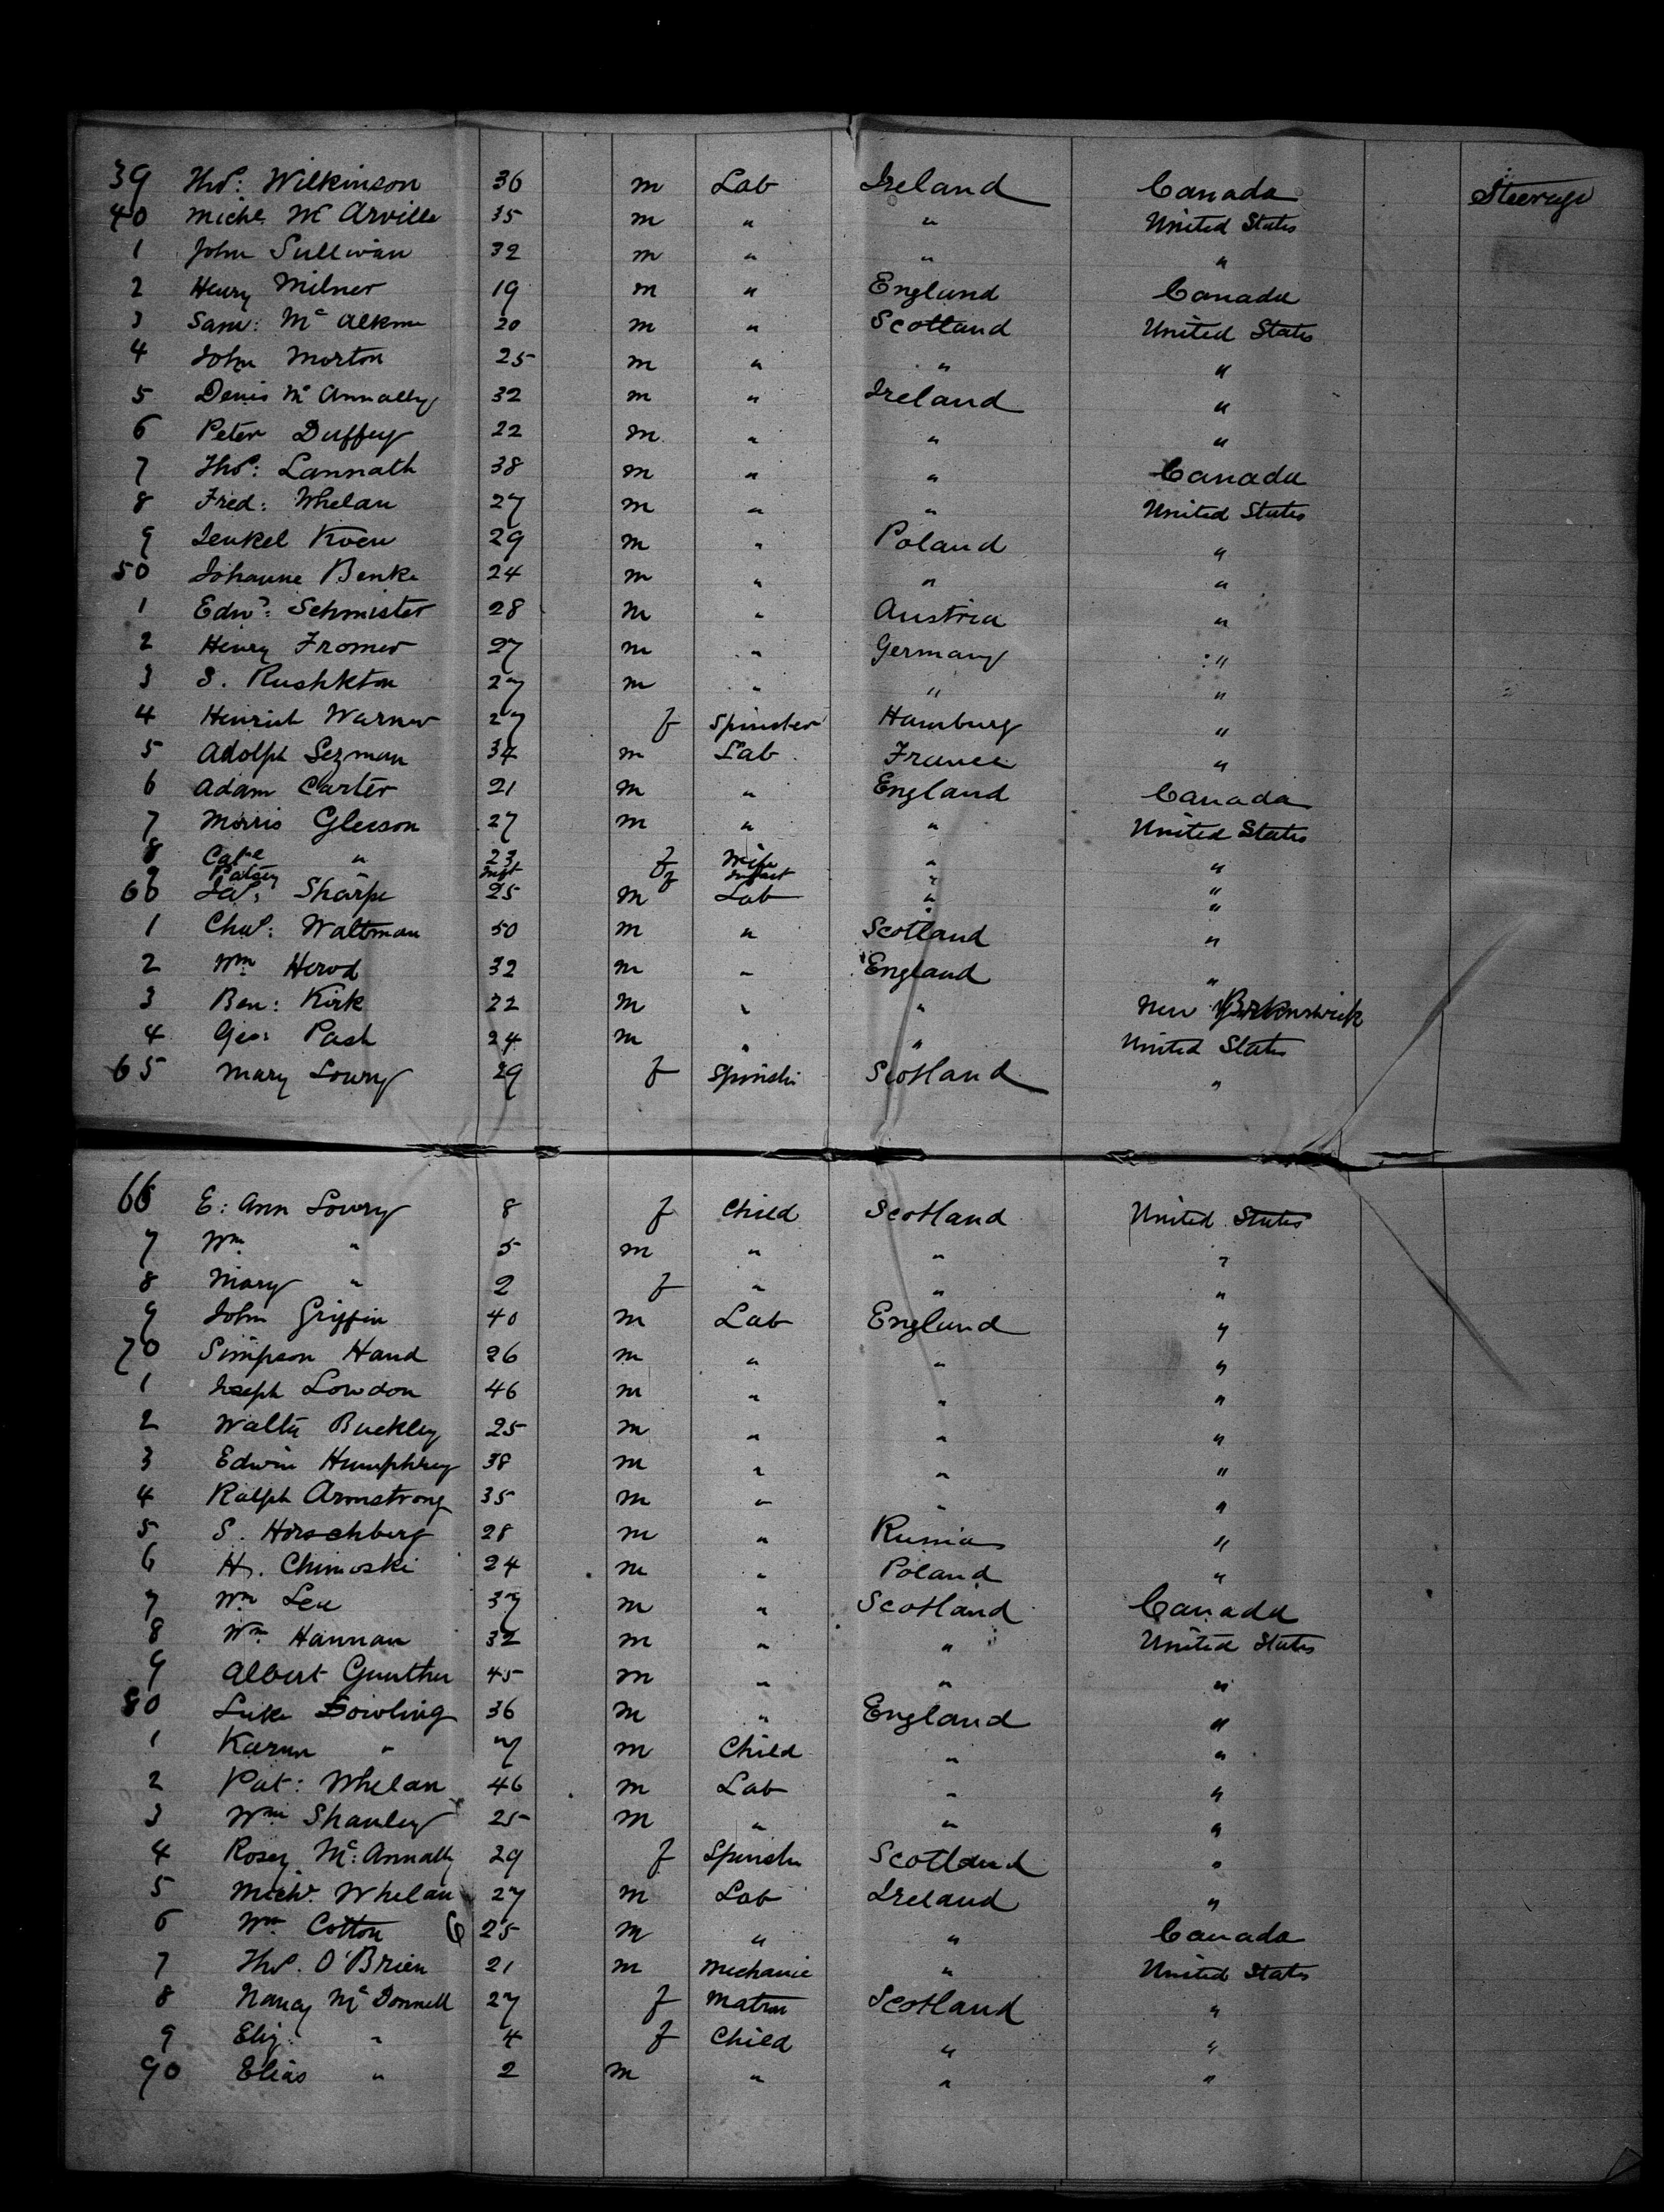 39 Thos: Wilkinson 36 m Lab Ireland Canada Steerage
40 Michl. Mc Arville 35 m " " United States
1 John Sullivan 32 m " " "
2 Henry Milner 19 m " England Canada
3 Saml: Mc 20 m " Scotland United States
4 John Morton 25 m " " "
5 Denis Mc Annally 32 m " Ireland "
6 Peter Duffey 22 m " " "
7 Thos: Lannath 38 m " " Canada
8 Fred: Whelan 27 m " " United States
9 Koen 29 m " Poland "
50 Johanne Benke 24 m " " "
1 Edwd: Schmister 28 m " Austria "
2 Henry Fromer 27 m " Germany "
3 S. Rushkton 27 m " " "
4 Henrich Warner 27 f Spinster Hamburg "
5 Adolph Sezman 34 m Lab France "
6 Adam Carter 21 m " England Canada
7 Morris Gleeson 27 m " " United States
8 Cathe " 23 f Wife " "
9 Patsey Inft f Infant " "
60 Jas: Sharpe 25 m Lab " "
1 Chas: Waltman 50 m " Scotland "
2 Wm Herod 32 m " England "
3 Ben: Kirk 22 m " " New
4 Geo: Pash 24 m " " United States
65 Mary Lowry 29 f Spinstr Scotland "
66 E: Ann Lowry 8 f Child Scotland United States
7 Wm " 5 m " " "
8 Mary " 2 f " " "
9 John Griffin 40 m Lab England "
70 Simpson Hand 26 m " " "
1 Joseph Lowdon 46 m " " "
2 Walter Buckley 25 m " " "
3 Edwin Humphrey 38 m " " "
4 Ralph Armstrong 35 m " " "
5 S. Horschberg 28 m " Russia "
6 H. Chimoski 24 m " Poland "
7 Wm Lee 37 m " Scotland Canada
8 Wm Hannan 32 m " " United States
9 Albert Gunther 45 m " " "
80 Luke Dowling 36 m " England "
1 " 7 m Child " "
2 Pat: Whelan 46 m Lab " "
3 Wm Shanley 25 m " " "
4 Rosey Mc: Annally 29 f Spinstr Scotland "
5 Michl. Whelan 27 m Lab Ireland "
6 Wm Cotton 6 25 m " " Canada
7 Thos. O'Brien 21 m Mechanic " United States
8 Nancy Mc Donnell 27 f Matron Scotland "
9 Eliz. " 4 f Child " "
90 Elias " 2 m " " "